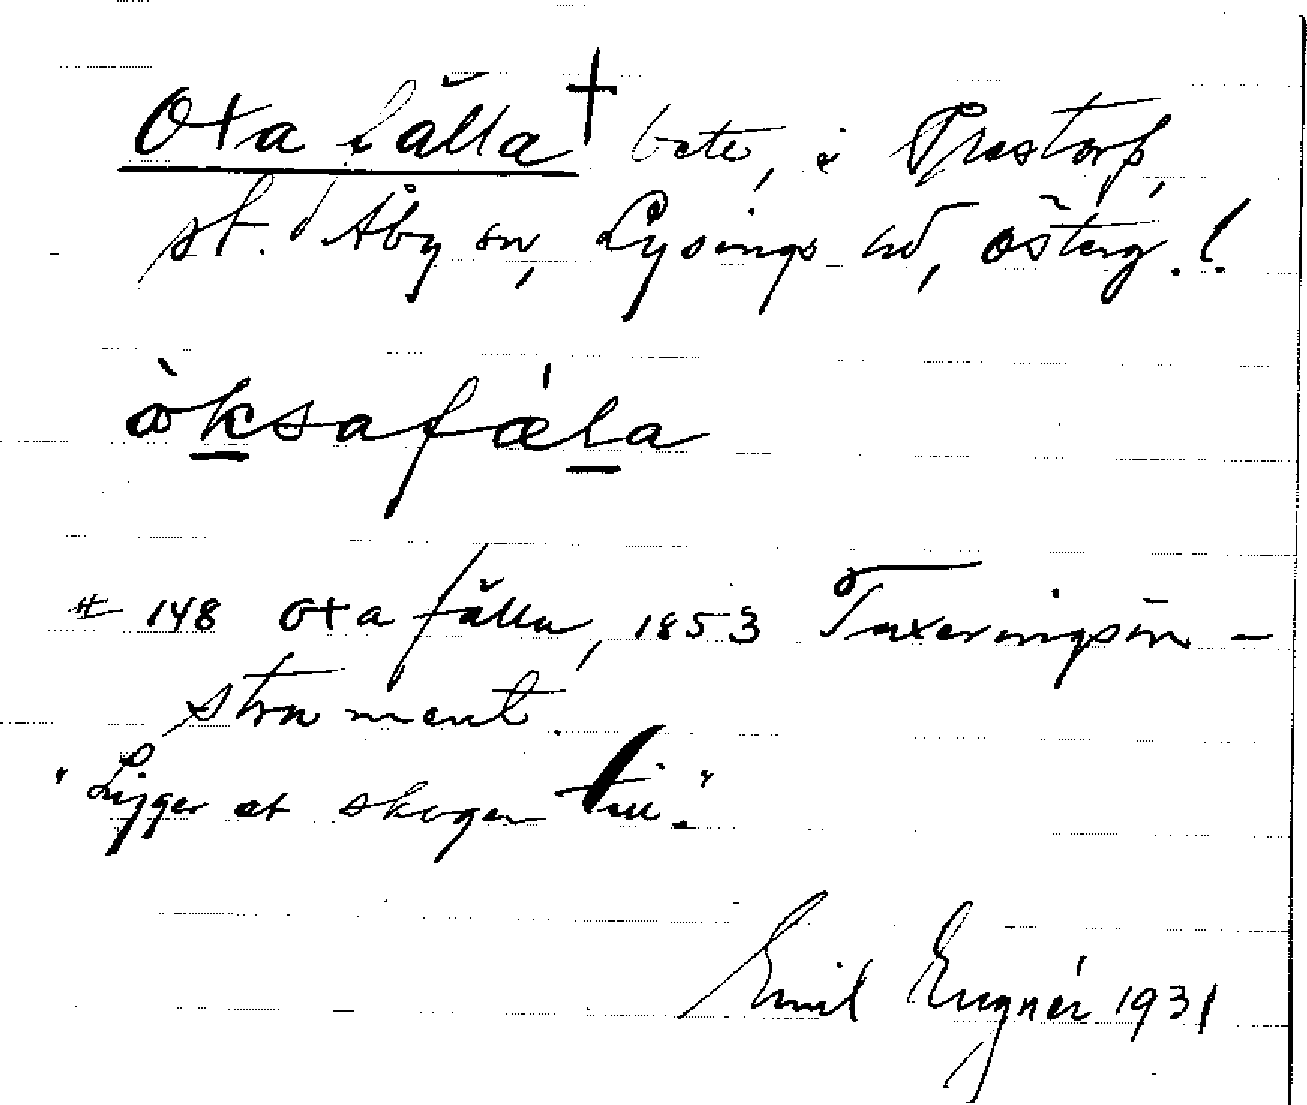 Oxafälla † bete, i Prestorp,
st. d Åby sn, Lysings hd, Österg.!
ò̀ksafǽla
# 148 Oxafälla, 1853 Taxeringsin-
strument.
"Ligger åt skogen till."
Emil Engnér 1931